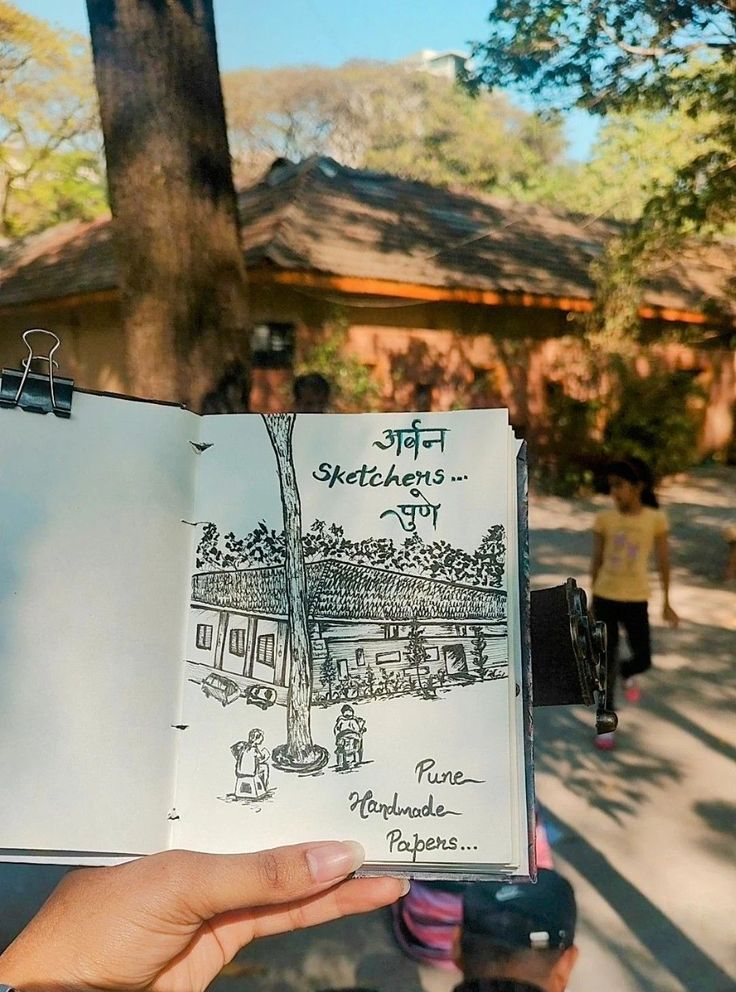 अर्बन
Sketchers...
पुणे
Pune
Handmade
Papers...